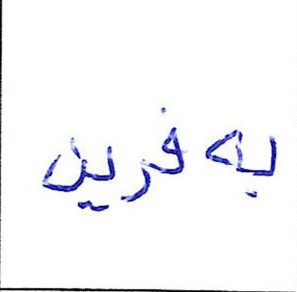 به فرین